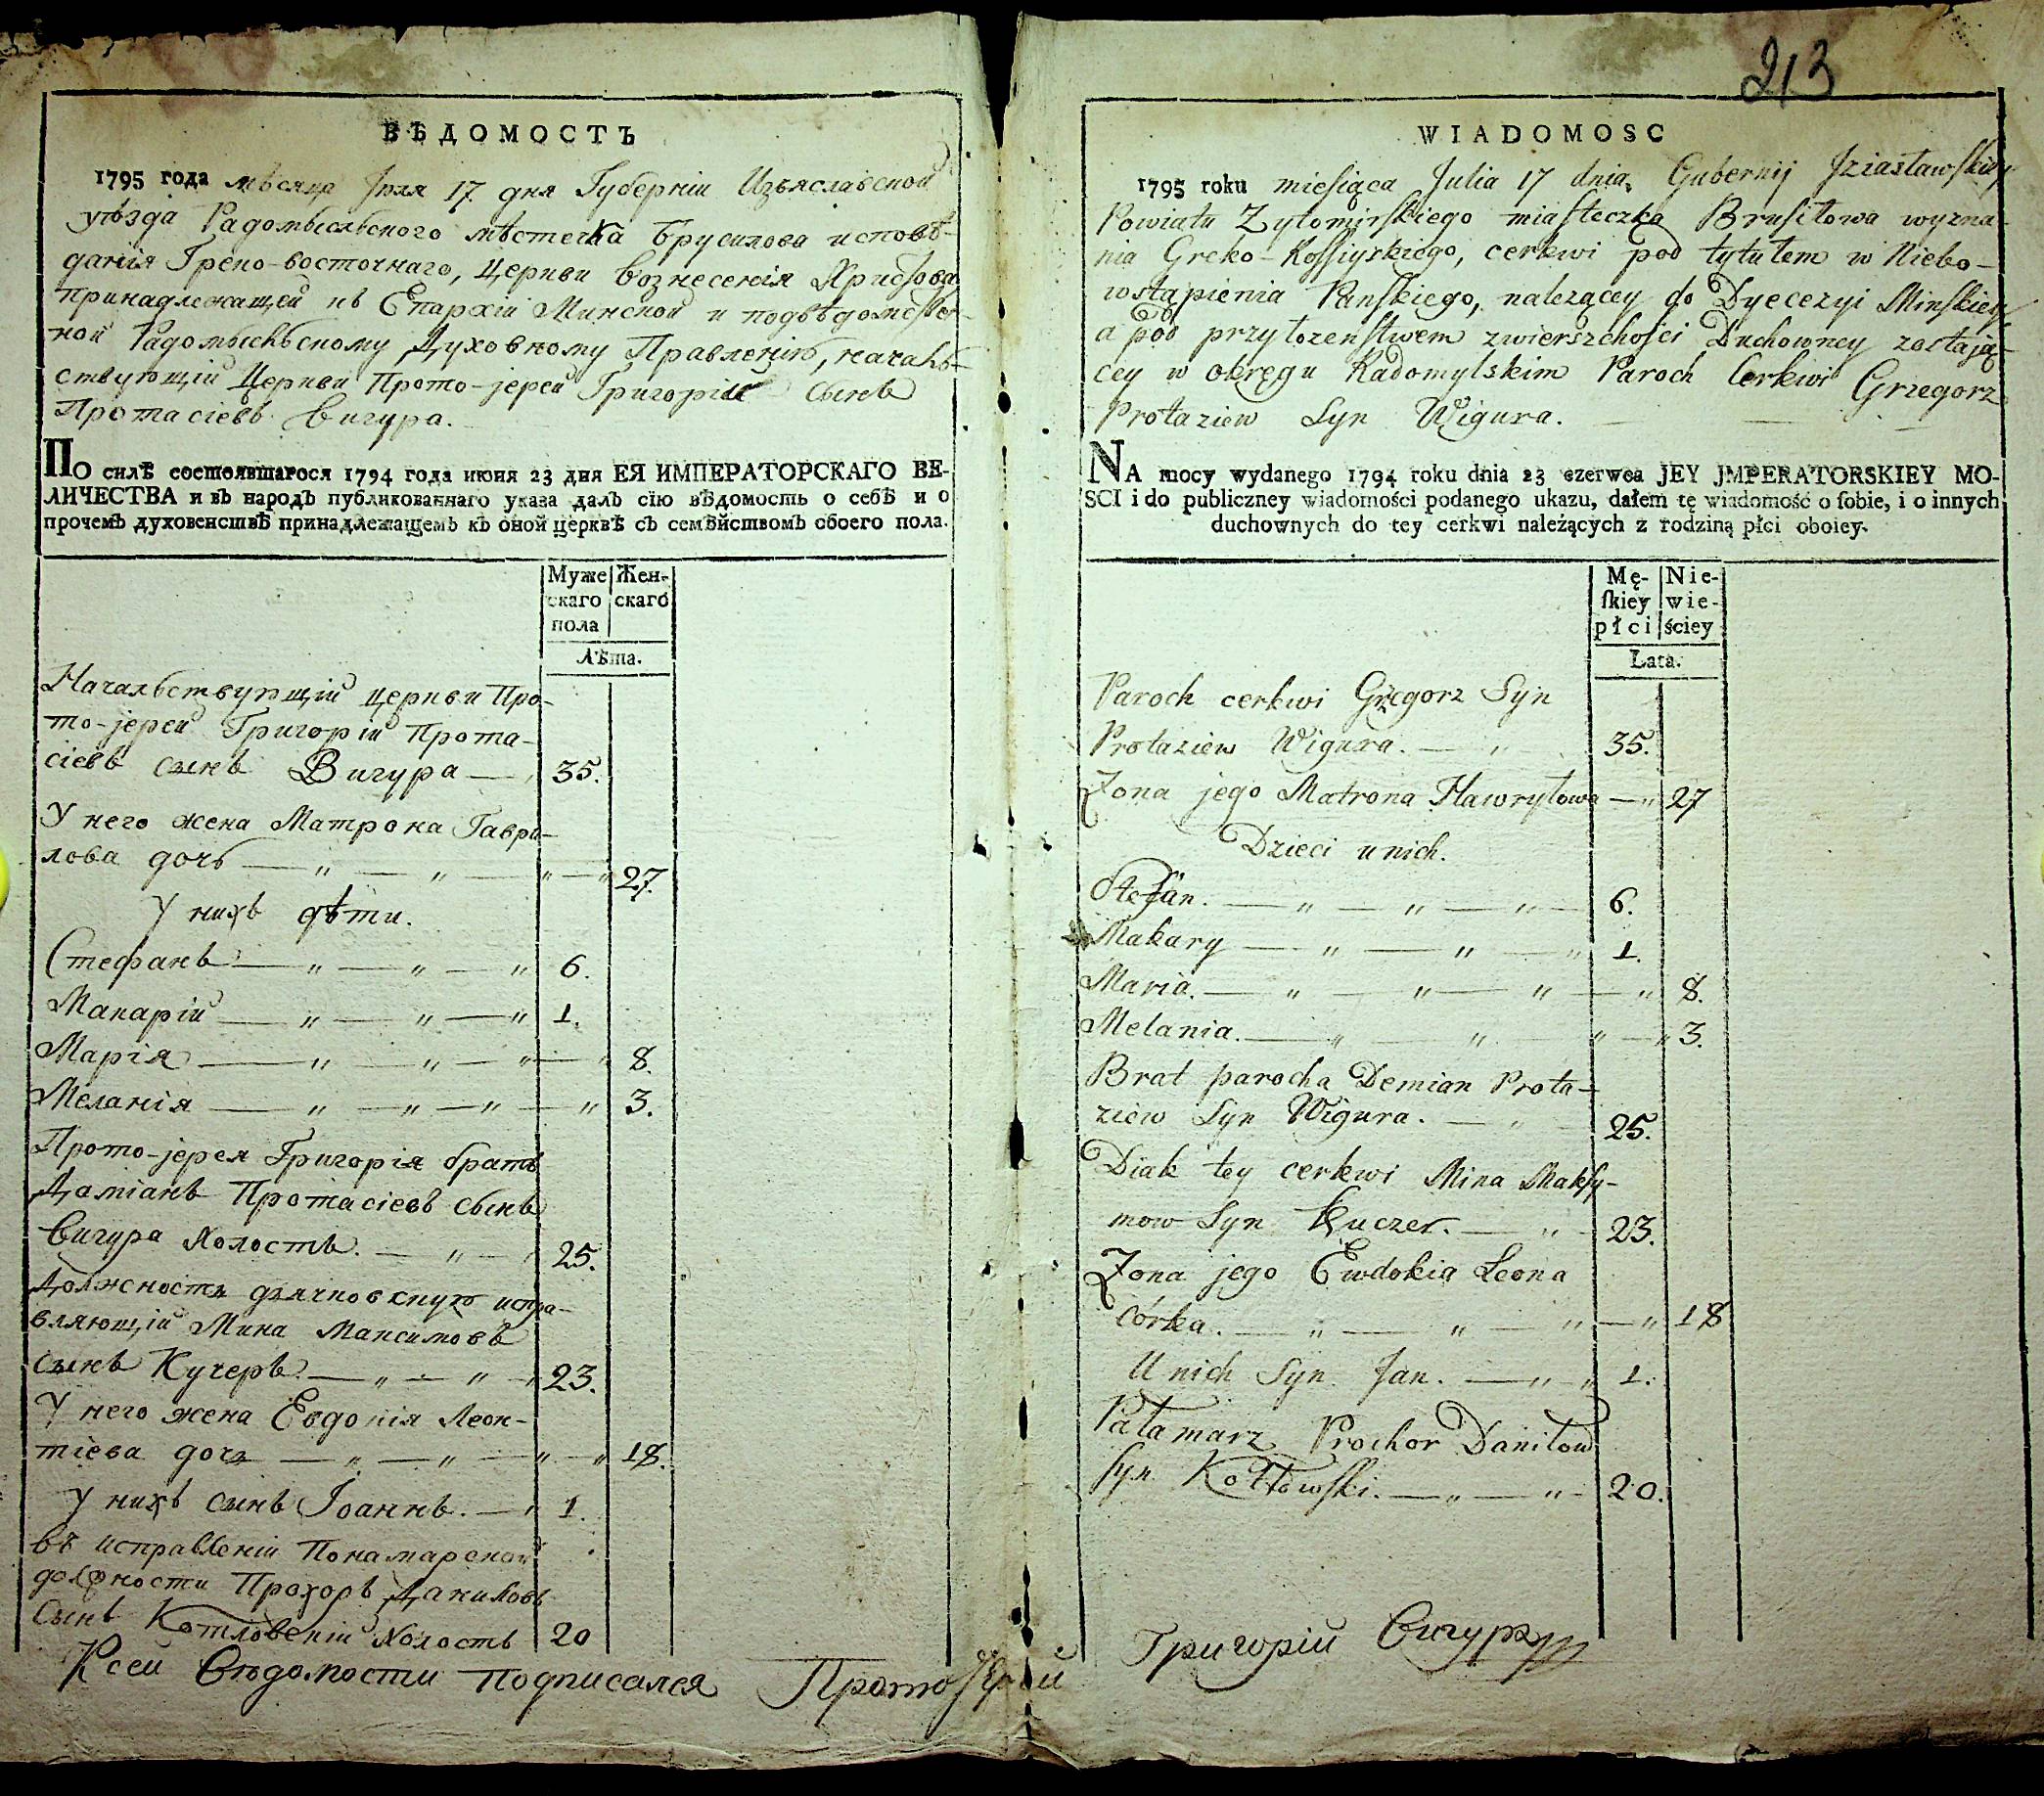 213
ВѢДОМОСТЪ
1795 года мѣсяца Іюля 17. дня Губерніи Изъяславской
уѣзда Радомысльского мѣстечка Брусилова исповѣ-
данія Греко-восточнаго, Церкви Вознесенія Христова
принадлежащей къ Епархіи Минской и подвѣдомствен-
ной Радомысльскому Духовному Правленію, началь-
ствующій Церкви Прото-іерей Григорій сынъ
Протасіевъ Вигура.
ПО силѣ состоявшагося 1794 года июня 23 дня ЕЯ ИМПЕРАТОРСКАГО ВЕ-
ЛИЧЕСТВА и въ народъ публикованнаго указа далъ сїю вѣдомость о себѣ и о
прочемъ духовенствѣ принадлежащемъ къ оной церквѣ съ семѣйствомъ обоего пола.
Муже Жен-
скаго скаго
пола
Лѣта.
Начальствующій церкви Про-
то-іерей Григорій Прота-
сіевъ сынъ Вигура — 35.
У него жена Матрона Гаври-
лова дочь — „ — „ — „ — „ 27.
У нихъ дѣти.
Стефанъ — „ — „ — „ 6.
Макарій — „ — „ — „ 1.
Марія — „ — „ — „ — „ 8.
Меланія — „ — „ — „ — „ 3.
Прото-іерея Григорія братъ
Даміанъ Протасіевъ сынъ
Вигура холостъ. — „ — 25.
Должность дьячковскую испра-
вляющій Мина Максимовъ
сынъ Кучеръ — „ — „ — 23.
У него жена Евдокія Леон-
тіева дочь — „ — „ — „ — „ 18.
У нихъ сынъ Іоаннъ. — „ 1.
въ исправленіи Понамарской
должности Прохоръ Даниловъ
сынъ Котловскій холостъ 20
К сей Ведомости подписался Протоіерей Григорій Вигура
WIADOMOSC
1795 roku miesiąca Julia 17 dnia, Gubernij Jziasławskiey
Powiatu Zytomirskiego miasteczka Brusiłowa wyzna-
nia Greko-Rossiyskiego, cerkwi pod tytułem w Niebo-
wstąpienia Panskiego, należącey do Dyecezyi Minskiey
a pod przyłożenstwem zwierszchości Duchowney zostają-
cey w okręgu Radomylskim Paroch Cerkwi Grzegorz
Protaziew Syn Wigura. — — —
NA mocy wydanego 1794 roku dnia 23 czerwca JEY JMPERATORSKIEY MO-
SCI i do publiczney wiadomości podanego ukazu, dałem tę wiadomość o ſobie, i o innych
duchownych do tey cerkwi należących z rodziną płci oboiey.
Mę- Nie-
ſkiey wie-
płci ściey
Lata.
Paroch cerkwi Grzegorz Syn
Protaziew Wigura. — „ 35.
Zona jego Matrona Hawryłowa — „ 27
Dzieci u nich.
Stefan. — „ — „ — „ — 6.
Makary — „ — „ — „ 1.
Maria. — „ — „ — „ — „ 8.
Melania. — „ — „ — „ — „ 3.
Brat parocha Demian Prota-
ziew Syn Wigura. — „ — 25.
Diak tey cerkwi Mina Maksy-
mow Syn Kuczer. — „ — 23.
Zona jego Ewdokia Leona
córka. — „ — „ — „ — „ 18
U nich Syn Jan. — „ — „ 1.
Pałamarz Prochor Daniłow
Syn Kotłowski. — „ — „ — 20.